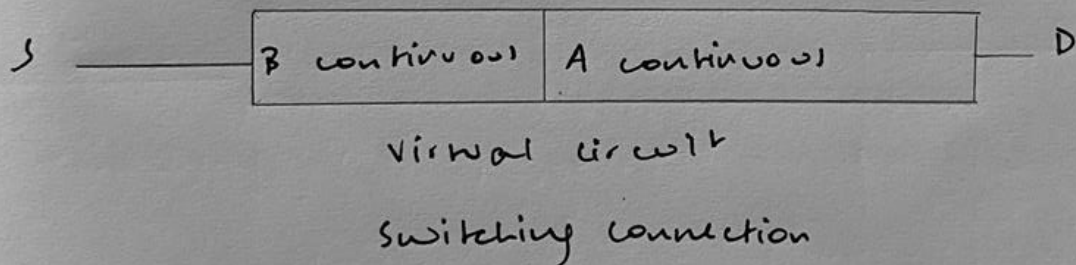 S B continuous A continuous D
virtual circuit
switching connection